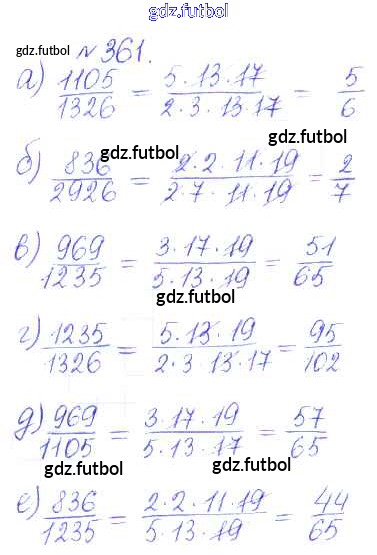 gdz.futbol
gdz.futbol № 361.
а) 1105/1326 = 5·13·17/2·3·13·17 = 5/6
gdz.futbol
gdz.futbol
б) 836/2926 = 2·2·11·19/2·7·11·19 = 2/7
gdz.futbol
в) 969/1235 = 3·17·19/5·13·19 = 51/65
gdz.futbol
г) 1235/1326 = 5·13·19/2·3·13·17 = 95/102
gdz.futbol
д) 969/1105 = 3·17·19/5·13·17 = 57/65
gdz.futbol
gdz.futbol
е) 836/1235 = 2·2·11·19/5·13·19 = 44/65
gdz.futbol